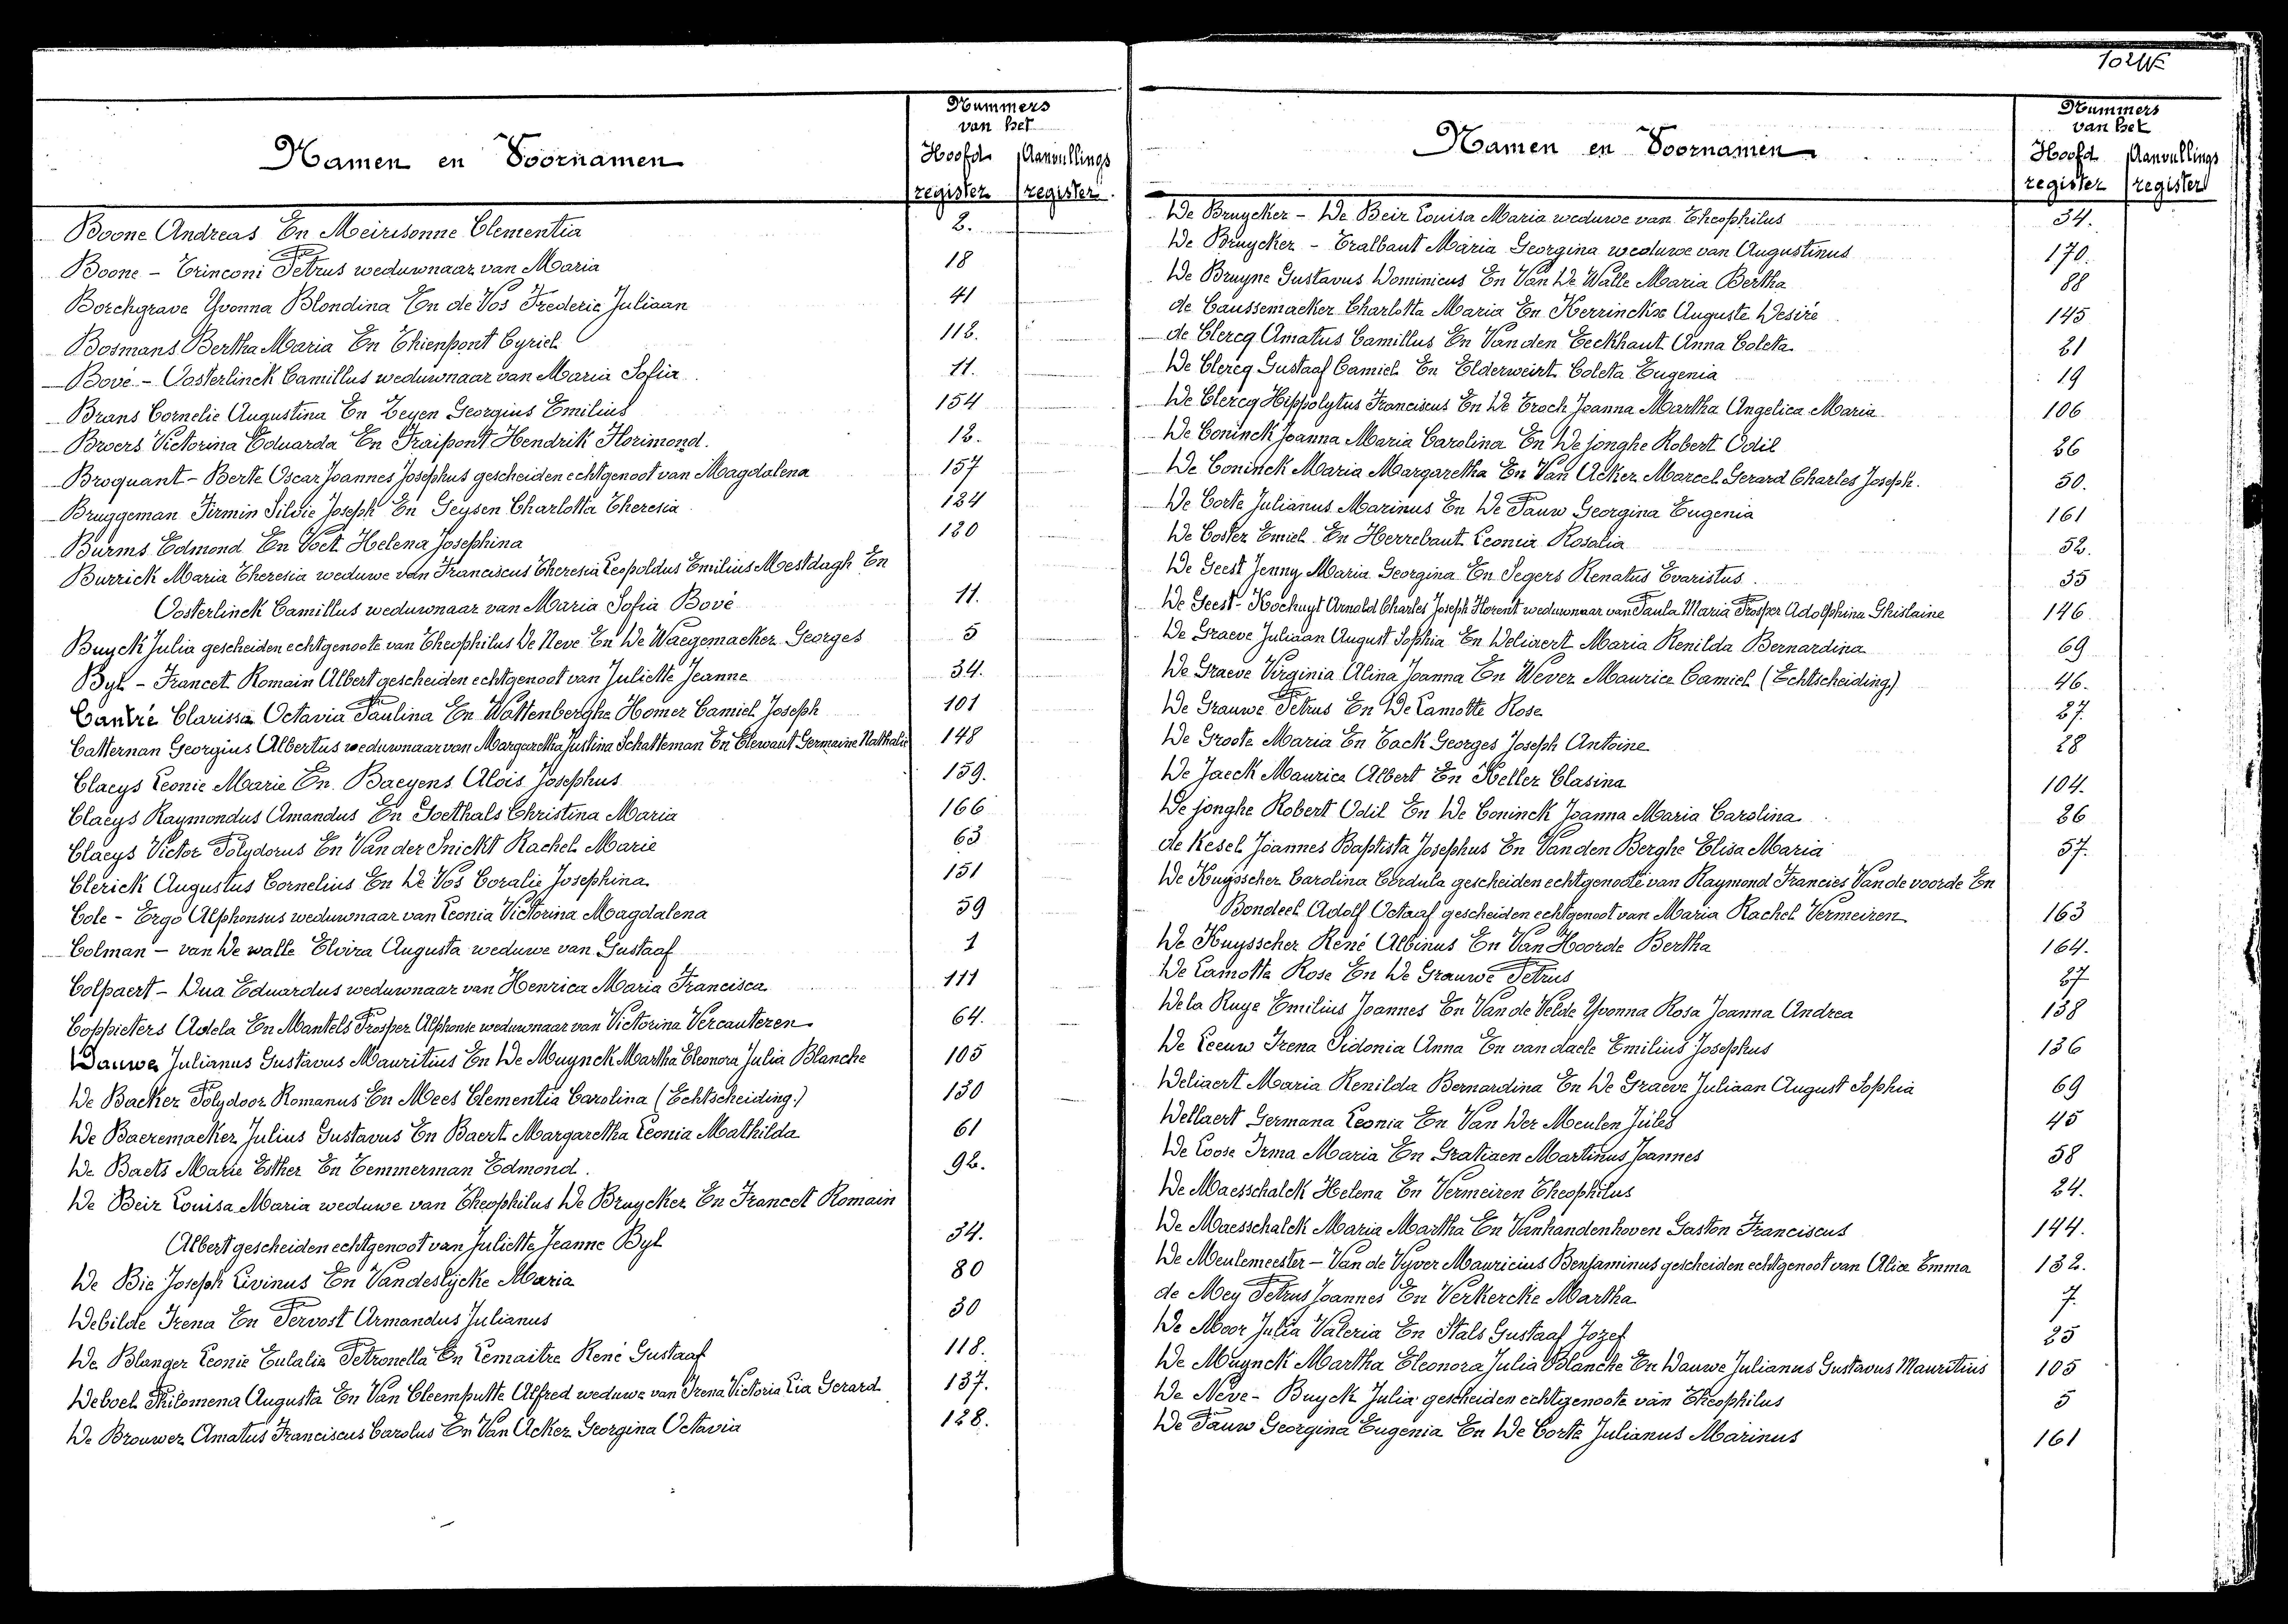 Nummers
van het
Namen en Voornamen
Hoofd Aanvullings
register register
Boone Andreas En Meirisonne Clementia 2.
Boone - Trinconi Petrus weduwnaar van Maria 18
Borchgrave Yvonna Blondina En de Vos Frederic Juliaan 41
Bosmans Bertha Maria En Thienpont Cyriel 112.
Bové - Oosterlinck Camillus weduwnaar van Maria Sofia 11.
Brans Cornelie Augustina En Zeyen Georgius Emilius 154
Broers Victorina Eduarda En Fraipont Hendrik Florimond. 12.
Broquant - Berte Oscar Joannes Josephus gescheiden echtgenoot van Magdalena 157
Bruggeman Firmin Silvie Joseph En Geysen Charlotta Theresia 124
Burms Edmond En Voet Helena Josephina 120
Burrick Maria Theresia weduwe van Franciscus Theresia Leopoldus Emilius Mestdagh En
Oosterlinck Camillus weduwnaar van Maria Sofia Bové 11.
Buyck Julia gescheiden echtgenoote van Theophilus De Neve En De Waegemaeker Georges 5
Byl - Francet Romain Albert gescheiden echtgenoot van Juliette Jeanne 34.
Cantré Clarissa Octavia Paulina En Wattenberghe Homer Camiel Joseph 101
Catternan Georgius Albertus weduwnaar van Margaretha Justina Schatteman En Clewaut Germaine Nathalie 148
Claeys Leonie Marie En Baeyens Aloïs Josephus 159.
Claeys Raymondus Amandus En Goethals Christina Maria 166
Claeys Victor Polydorus En Van der Snickt Rachel Marie 63
Clerick Augustus Cornelius En De Vos Coralie Josephina 151
Cole - Ergo Alphonsus weduwnaar van Leonia Victorina Magdalena 59
Colman - van De walle Elvira Augusta weduwe van Gustaaf 1
Colpaert - Dua Eduardus weduwnaar van Henrica Maria Francisca 111
Coppieters Adela En Mantels Prosper Alphonse weduwnaar van Victorina Vercauteren 64.
Dauwe Julianus Gustavus Mauritius En De Muynck Martha Eleonora Julia Blanche 105
De Backer Polydoor Romanus En Mees Clementia Carolina (Echtscheiding.) 130
De Baeremaeker Julius Gustavus En Baert Margaretha Leonia Mathilda 61
De Baets Marie Esther En Temmerman Edmond. 92.
De Beir Louisa Maria weduwe van Theophilus De Bruycker En Francet Romain
Albert gescheiden echtgenoot van Juliette Jeanne Byl 34.
De Bie Joseph Livinus En Vandeslycke Maria 80
Debilde Irena En Pervost Armandus Julianus 30
De Blanger Leonie Eulalia Petronella En Lemaitre René Gustaaf 118.
Deboel Philomena Augusta En Van Cleemputte Alfred weduwe van Irena Victoria Lia Gerard 137.
De Brouwer Amatus Franciscus Carolus En Van Acker Georgina Octavia 128.
Nummers
van het
Namen en Voornamen
Hoofd Aanvullings
register register
De Bruycker - De Beir Louisa Maria weduwe van Theophilus 34.
De Bruycker - Tralbaut Maria Georgina weduwe van Augustinus 170.
De Bruyne Gustavus Dominicus En Van De Walle Maria Bertha 88
de Caussemaeker Charlotta Maria En Kerrinckx Auguste Desiré 145
de Clercq Amatus Camillus En Van den Eeckhaut Anna Coleta 21
De Clercq Gustaaf Camiel En Elderweirt Coleta Eugenia 19
De Clercq Hippolytus Franciscus En De Troch Joanna Martha Angelica Maria 106
De Coninck Joanna Maria Carolina En De jonghe Robert Odil 26
De Coninck Maria Margaretha En Van Acker Marcel Gerard Charles Joseph. 50.
De Corte Julianus Marinus En De Pauw Georgina Eugenia 161
De Coster Emiel En Herrebaut Leonia Rosalia 52.
De Geest Jenny Maria Georgina En Segers Renatus Evaristus 35
De Geest - Kochuyt Arnold Charles Joseph Florent weduwnaar van Paula Maria Prosper Adolphina Ghislaine 146
De Graeve Juliaan August Sophia En Deliaert Maria Renilda Bernardina 69
De Graeve Virginia Alina Joanna En Wever Maurice Camiel (Echtscheiding) 46.
De Grauwe Petrus En De Lamotte Rose 27.
De Groote Maria En Tack Georges Joseph Antoine 28
De Jaeck Maurice Albert En Keller Clasina 104.
De jonghe Robert Odil En De Coninck Joanna Maria Carolina 26
de Kesel Joannes Baptista Josephus En Van den Berghe Elisa Maria 57.
De Kuysscher Carolina Cordula gescheiden echtgenoote van Raymond Francies Van de voorde En
Bondeel Adolf Octaaf gescheiden echtgenoot van Maria Rachel Vermeiren 163
De Kuysscher René Albinus En Van Hoorde Bertha 164.
De Lamotte Rose En De Grauwe Petrus 27
De la Ruye Emilius Joannes En Van de Velde Yvonna Rosa Joanna Andrea 138
De Leeuw Irena Sidonia Anna En van daele Emilius Josephus 136
Deliaert Maria Renilda Bernardina En De Graeve Juliaan August Sophia 69
Dellaert Germana Leonia En Van Der Meulen Jules 45
De Loose Irma Maria En Gratiaen Martinus Joannes 58
De Maesschalck Helena En Vermeiren Theophilus 24.
De Maesschalck Maria Martha En Vanhandenhoven Gaston Franciscus 144.
De Meulemeester - Van de Vyver Mauricius Benjaminus gescheiden echtgenoot van Alice Emma 132.
de Mey Petrus Joannes En Verkercke Martha 7.
De Moor Julia Valeria En Stals Gustaaf Jozef 25
De Muynck Martha Eleonora Julia Blanche En Dauwe Julianus Gustavus Mauritius 105
De Neve - Buyck Julia gescheiden echtgenoote van Theophilus 5
De Pauw Georgina Eugenia En De Corte Julianus Marinus 161